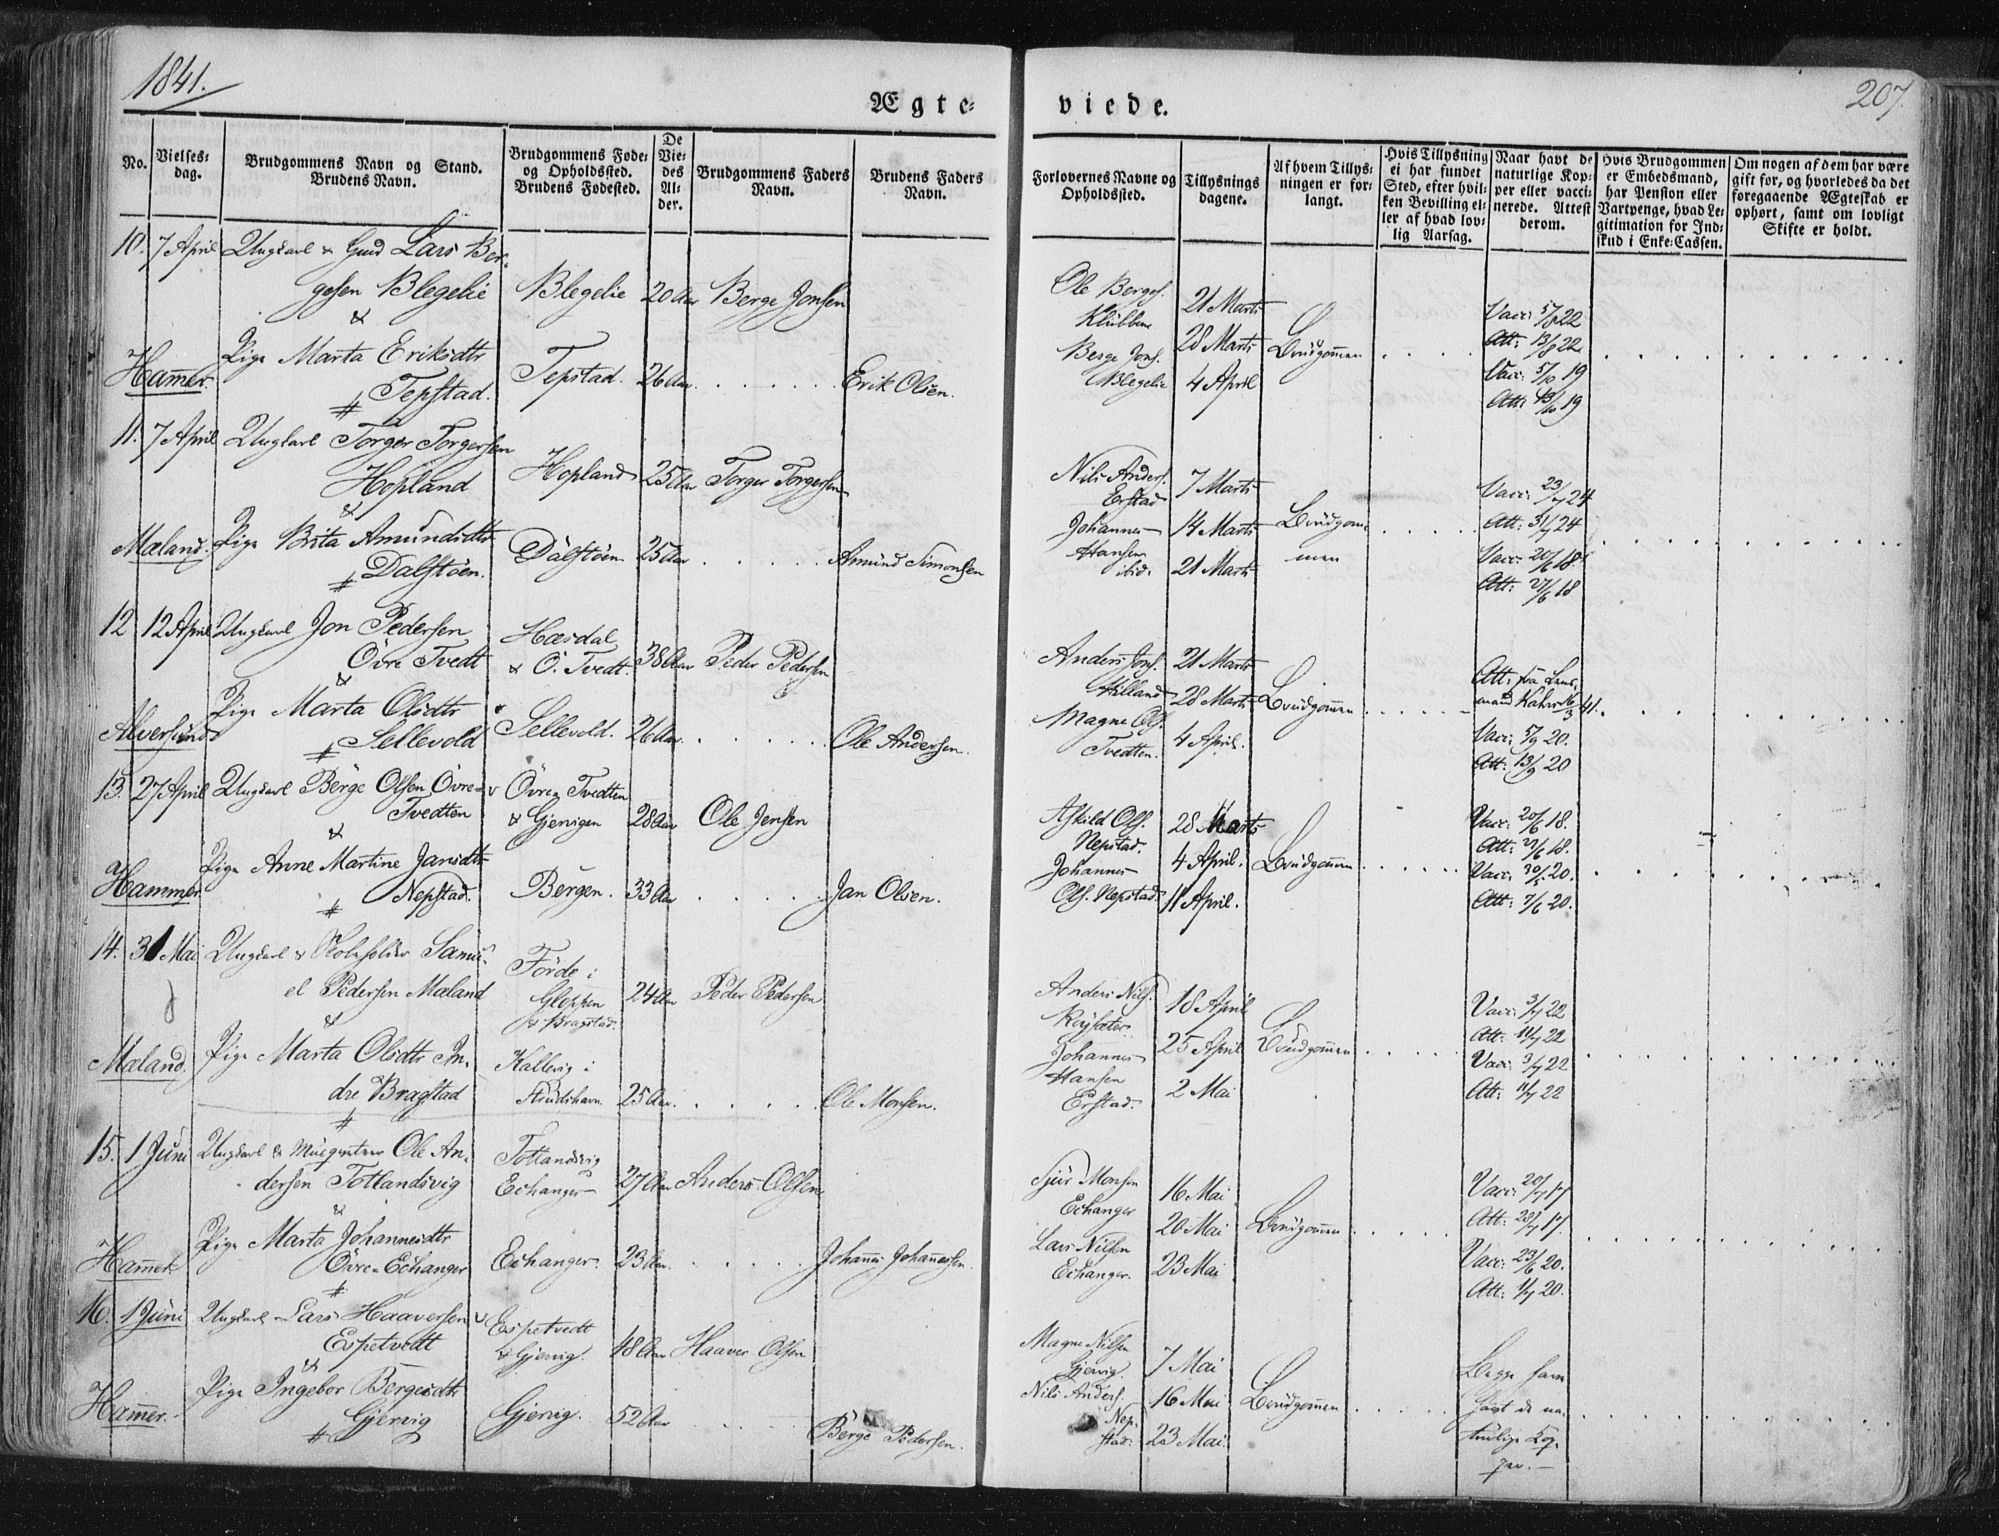 1841.
207.
Ægte-
viede.
No.
Vielses-
dag.
Brudgommens Navn og Stand.
Brudens Navn.
Brudgommens Føde-
og Opholdsted.
Brudens Fødested.
De
Vie-
des
Al-
der.
Brudgommens Faders
Navn.
Brudens Faders
Navn.
Forlovernes Navne og
Opholdsted.
Tillysnings
dagene.
Af hvem Tillys-
ningen er for-
langt.
Hvis Tillysning
ei har fundet
Sted, efter hvil-
ken Bevilling el-
ler af hvad lov-
lig Aarsag.
Naar havt de
naturlige Kop-
per eller vacci-
nerede. Attest
derom.
Hvis Brudgommen
er Embedsmand,
har Pension eller
Vartpenge, hvad Le-
gitimation for Ind-
skud i Enke-Cassen.
Om nogen af dem har være
gift før, og hvorledes da det
foregaaende Ægteskab er
ophørt, samt om lovligt
Skifte er holdt.
10. 7 April Ungkarl & Gmd Lars Ber-
gesen Blegelie Blegelie 20 Aar Berge Jonsen
&
Pige Marta Eriksdtr
Hammer. Tepstad. Tepstad. 26 Aar. Erik Olsen.
Ole Berges.
Klubben
Berge Jons.
Blegelie
21 Marts
28 Marts
4 April
Brudgommen
Vacc: 5/8 22
Att: 13/8 22
Vacc: 5/10 19
Att: 13/10 19
11. 7 April Ungkarl Torger Torgersen
Hopland Hopland 25 Aar Torger Torgersen
&
Pige Brita Amundsdtr
Mæland. Dalstøen. Dalstøen 25 Aar Amund Simonsen
Nils Anders.
Erstad
Johannes
Hansen
ibid.
7 Marts
14 Marts
21 Marts
Brudgom-
men
Vacc: 23/7 24
Att: 31/7 24
Vacc: 20/6 18
Att: 27/6 18
12 12 April Ungkarl Jon Pedersen
Øvre Tvedt Hæsdal
& Ø. Tvedt. 38 Aar Peder Pedersen
&
Pige Marta Olsdtr
Alversund Sellevold Sellevold. 26 Aar. Ole Andersen.
Anders Jons.
Hilland
Magne Ols.
Tvedten.
21 Marts
28 Marts
4 April.
Brudgommen
Att: fra Lens-
mand Kahrs 16/3 41.
Vacc: 5/9 20.
Att: 13/9 20
13. 27 April Ungkarl Børge Olsen Øvre-
Tvedten Øvre Tvedten
& Gjervigen 28 Aar Ole Jensen
&
Pige Anne Martine Jansdtr
Hammer Nepstad. Bergen. 33 Aar Jan Olsen.
Askild Ols.
Nepstad.
Johannes
Ols. Nepstad.
28 Marts
4 April.
11 April.
Brudgommen
Vacc: 20/6 18.
Att: 27/6 18.
Vacc: 30/5 20.
Att: 7/6 20.
14. 31 Mai Ungkarl & Skoleholder Samu-
el Pedersen Mæland Førde i
Gloppen
& Bragstad. 24 Aar Peder Pedersen
&
Pige Marta Olsdtr In-
Mæland. dre Bragstad Kallevig i
Skudshavn 25 Aar. Ole Monsen.
Anders Nils.
Røysæter
Johannes
Hansen
Erstad.
18 April
25 April
2 Mai
Brudgommen
Vacc: 3/7 22
Att: 11/7 22
Vacc: 3/7 22
Att: 11/7 22
15. 1 Juni Ungkarl & Musqueteer Ole An-
dersen Totlandsvig Totlandsvig
Echanger 27 Aar Anders Olsen
&
Pige Marta Johannesdtr
Hammer. Øvre-Echanger Echanger. 23 Aar. Johannes Johannessen.
Sjur Monsen
Echanger
Lars Nilsen
Echanger.
16 Mai
20 Mai
23 Mai
Brudgommen
Vacc: 20/7 17
Att: 28/7 17.
Vacc: 23/6 20.
Att: 1/7 20.
16. 1 Juni Ungkarl Lars Haaversen
Espetvedt Espetvedt
& Gjervig. 48 Aar Haaver Olsen
&
Pige Ingebor Bergesdtr
Hammer. Gjervig Gjervig. 52 Aar Børge Pedersen.
Magne Nilsen
Gjervig.
Nils Anders.
Nep-
stad.
7 Mai
16 Mai
23 Mai.
Brudgommen
Begge have
havt de na-
turlige Kop-
per.